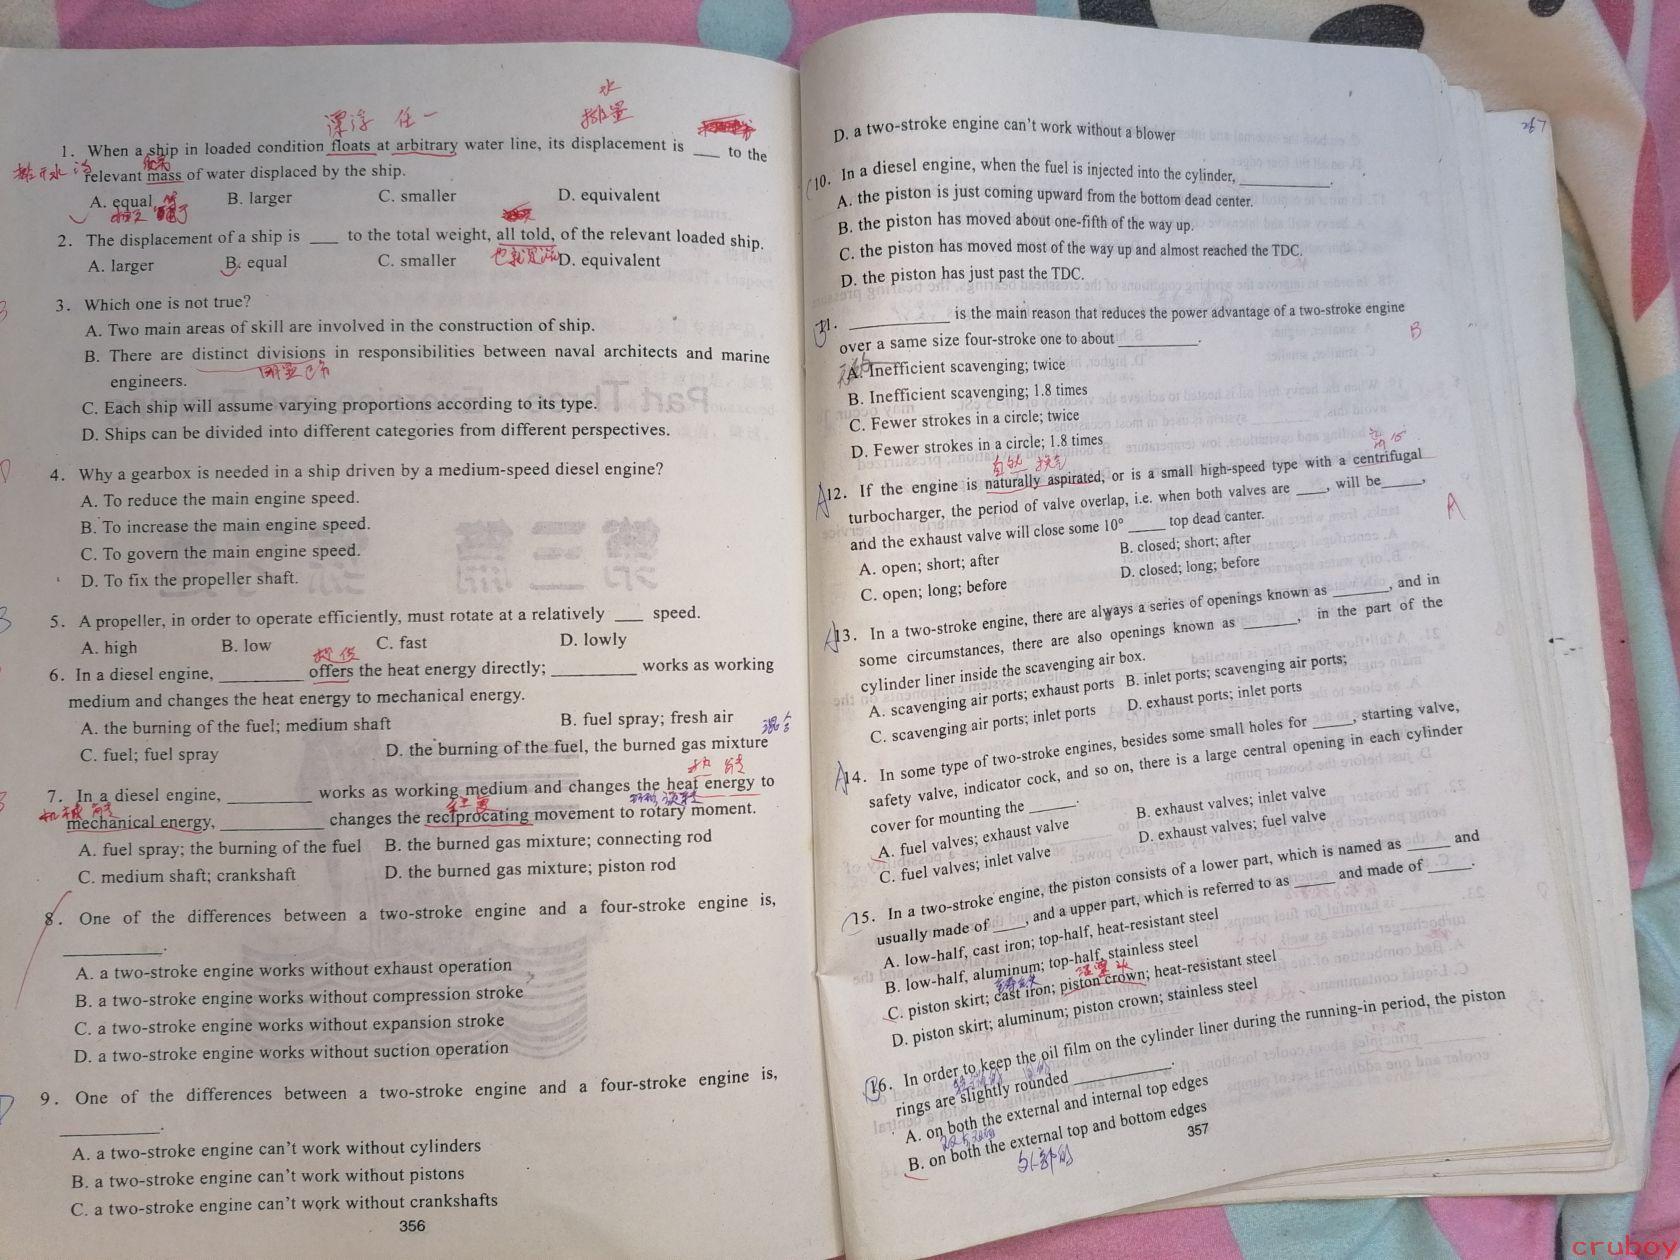 漂浮 任一
水
排量
1. When a ship in loaded condition floats at arbitrary water line, its displacement is ___ to the
排开水
relevant mass of water displaced by the ship.
A. equal B. larger C. smaller D. equivalent
2. The displacement of a ship is ___ to the total weight, all told, of the relevant loaded ship.
A. larger B. equal C. smaller D. equivalent
也就是说
3. Which one is not true?
A. Two main areas of skill are involved in the construction of ship.
B. There are distinct divisions in responsibilities between naval architects and marine
engineers.
C. Each ship will assume varying proportions according to its type.
D. Ships can be divided into different categories from different perspectives.
4. Why a gearbox is needed in a ship driven by a medium-speed diesel engine?
A. To reduce the main engine speed.
B. To increase the main engine speed.
C. To govern the main engine speed.
D. To fix the propeller shaft.
5. A propeller, in order to operate efficiently, must rotate at a relatively ___ speed.
A. high B. low C. fast D. lowly
提供
6. In a diesel engine, _________ offers the heat energy directly; _________ works as working
medium and changes the heat energy to mechanical energy.
A. the burning of the fuel; medium shaft B. fuel spray; fresh air
混合
C. fuel; fuel spray D. the burning of the fuel, the burned gas mixture
热能
7. In a diesel engine, _________ works as working medium and changes the heat energy to
机械能
往复
mechanical energy, ___________ changes the reciprocating movement to rotary moment.
A. fuel spray; the burning of the fuel B. the burned gas mixture; connecting rod
C. medium shaft; crankshaft D. the burned gas mixture; piston rod
8. One of the differences between a two-stroke engine and a four-stroke engine is,
___________.
A. a two-stroke engine works without exhaust operation
B. a two-stroke engine works without compression stroke
C. a two-stroke engine works without expansion stroke
D. a two-stroke engine works without suction operation
9. One of the differences between a two-stroke engine and a four-stroke engine is,
___________.
A. a two-stroke engine can't work without cylinders
B. a two-stroke engine can't work without pistons
C. a two-stroke engine can't work without crankshafts
356
D. a two-stroke engine can't work without a blower
10. In a diesel engine, when the fuel is injected into the cylinder, __________.
A. the piston is just coming upward from the bottom dead center.
B. the piston has moved about one-fifth of the way up.
C. the piston has moved most of the way up and almost reached the TDC.
D. the piston has just past the TDC.
11. ___________ is the main reason that reduces the power advantage of a two-stroke engine
over a same size four-stroke one to about _________.
B
A. Inefficient scavenging; twice
B. Inefficient scavenging; 1.8 times
C. Fewer strokes in a circle; twice
D. Fewer strokes in a circle; 1.8 times
自然 换气
12. If the engine is naturally aspirated, or is a small high-speed type with a centrifugal
turbocharger, the period of valve overlap, i.e. when both valves are ____, will be_____,
and the exhaust valve will close some 10° _____ top dead canter.
A
A. open; short; after B. closed; short; after
C. open; long; before D. closed; long; before
13. In a two-stroke engine, there are always a series of openings known as _______, and in
some circumstances, there are also openings known as _______, in the part of the
cylinder liner inside the scavenging air box.
A. scavenging air ports; exhaust ports B. inlet ports; scavenging air ports;
C. scavenging air ports; inlet ports D. exhaust ports; inlet ports
14. In some type of two-stroke engines, besides some small holes for _____, starting valve,
safety valve, indicator cock, and so on, there is a large central opening in each cylinder
cover for mounting the ______.
A. fuel valves; exhaust valve B. exhaust valves; inlet valve
C. fuel valves; inlet valve D. exhaust valves; fuel valve
15. In a two-stroke engine, the piston consists of a lower part, which is named as _____ and
usually made of ____, and a upper part, which is referred to as _____ and made of _____.
A. low-half, cast iron; top-half, heat-resistant steel
B. low-half, aluminum; top-half, stainless steel
铸铁 活塞头
C. piston skirt; cast iron; piston crown; heat-resistant steel
D. piston skirt; aluminum; piston crown; stainless steel
16. In order to keep the oil film on the cylinder liner during the running-in period, the piston
rings are slightly rounded ____________.
A. on both the external and internal top edges
B. on both the external top and bottom edges
外部的
357
cruboy